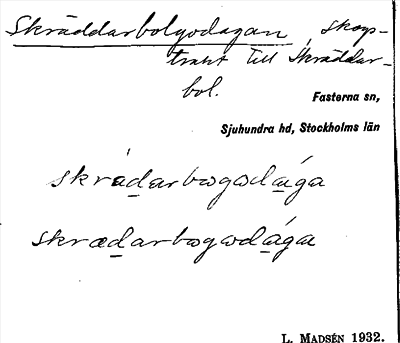 Skräddarbolgodagan, skogs-
trakt till Skräddar-
bol.
Fasterna sn,
Sjuhundra hd, Stockholms län
skrádarbωgωdāga
skrædarbωgωdāga
L. MADSÉN 1932.